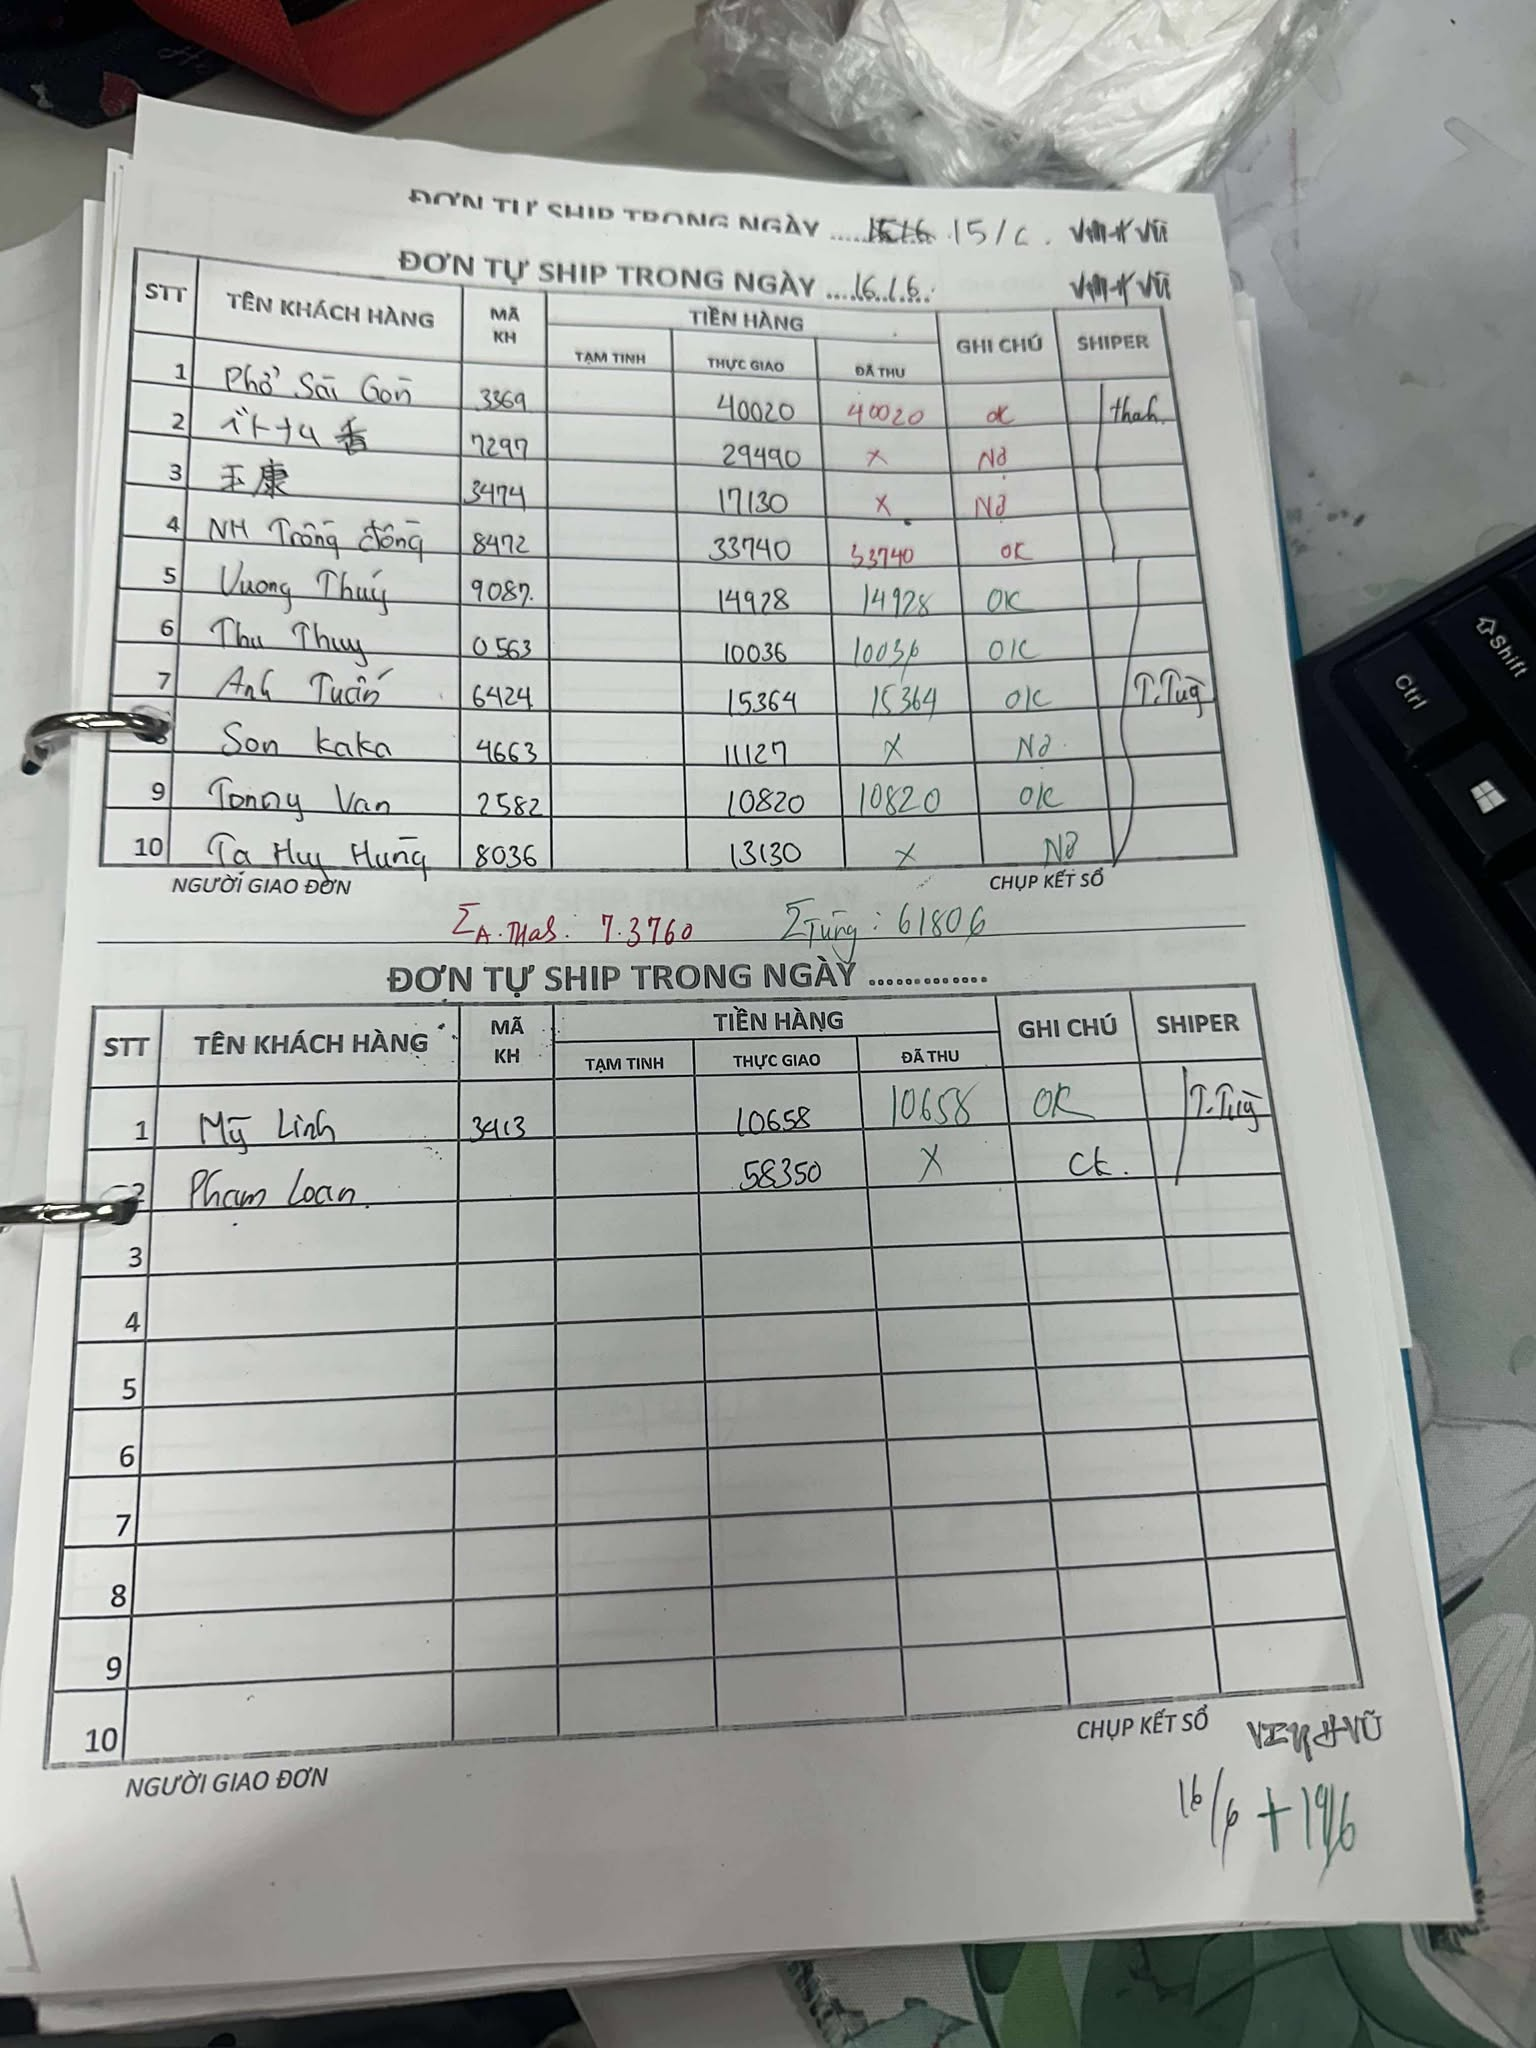 ĐƠN TỰ SHIP TRONG NGÀY ..... 15/6.
ĐƠN TỰ SHIP TRONG NGÀY .....16./.6..
STT TÊN KHÁCH HÀNG MÃ KH TIỀN HÀNG GHI CHÚ SHIPER
TẠM TINH THỰC GIAO ĐÃ THU
1 Phở Sài Gòn 3369 40020 40020 OK thah
2 香 7297 29490 X Nợ
3 玉康 3474 17130 X Nợ
4 NH Trống đồng 8472 33740 33740 OK
5 Vuong Thuý 9087. 14928 14928 OK
6 Thu Thuy 0563 10036 10036 OK
7 Anh Tuấn 6424 15364 15364 OK T.Tùng
Son kaka 4663 11127 X Nợ
9 Tonny Van 2582 10820 10820 OK
10 Ta Huy Hùng 8036 13130 X Nợ
NGƯỜI GIAO ĐƠN CHỤP KẾT SỔ
Σ A. : 7.3760 Σ Tùng : 61806
ĐƠN TỰ SHIP TRONG NGÀY .............
STT TÊN KHÁCH HÀNG MÃ KH TIỀN HÀNG GHI CHÚ SHIPER
TẠM TINH THỰC GIAO ĐÃ THU
1 Mỹ Linh 3413 10658 10658 OK T.Tùng
2 Phạm Loan 58350 X Ck.
3
4
5
6
7
8
9
10
NGƯỜI GIAO ĐƠN CHỤP KẾT SỔ
16/6 + 19/6
Ctrl
Shift